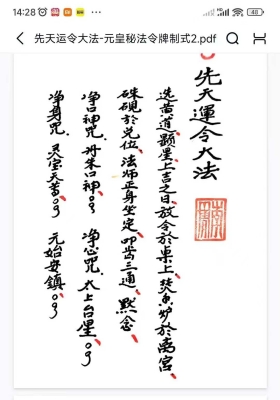 14:28
40
先天运令大法-元皇秘法令牌制式2.pdf
先天運令大法
选黄道顕星上吉之日放令於桌上焚香炉於离宫
硃硯於兑位法师正身坐定叩齿三通默念
净口神咒丹朱口神
净心咒太上台星
净身咒灵宝天尊
元始安鎮